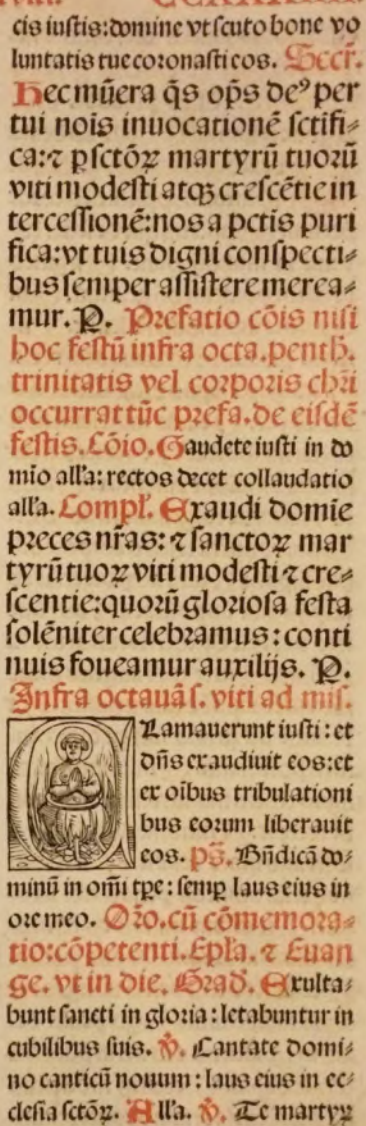 cis iustis: domine vt scuto bone vo
luntatis tue coronasti eos. Secr̃.
Hec mũera q̃s op̃s deꝰ per
tui nois inuocationẽ sctifi⸗
ca: ⁊ p sctõꝝ martyrũ tuoꝛũ
viti modesti atqꝫ crescẽtie in
tercessionẽ: nos a pctis puri
fica: vt tuis digni conspecti⸗
bus semper assistere merea⸗
mur. P. Prefatio cõis nisi
hoc festũ infra octa. penth.
trinitatis vel coꝛpoꝛis chꝛi
occurrat tũc pꝛefa. de eisdẽ
festis. Cõio. Gaudete iusti in do
mio all'a: rectos decet collaudatio
all'a. Compl'. Exaudi domie
pꝛeces nr̃as: ⁊ sanctoꝝ mar
tyrũ tuoꝝ viti modesti ⁊ cre⸗
scentie: quoꝛũ gloꝛiosa festa
solẽniter celebꝛamus: conti
nuis foueamur auxilijs. P.
Infra octauã s. viti ad mis.
Clamauerunt iusti: et
dñs exaudiuit eos: et
ex oĩbus tribulationi
bus eoꝛum liberauit
eos. pẽ. Bñdicã do⸗
minũ in om̃i tpe: semp laus eius in
oꝛe meo. Oꝛo. cũ cõmemoꝛa⸗
tio: cõpetenti. Epl'a. ⁊ Euan
ge. vt in die. Grad. Exulta⸗
bunt sancti in gloꝛia: letabuntur in
cubilibus suis. ℣. Cantate domi⸗
no canticũ nouum: laus eius in ec⸗
clesia sctõꝝ. All'a. ℣. Te martyꝝ